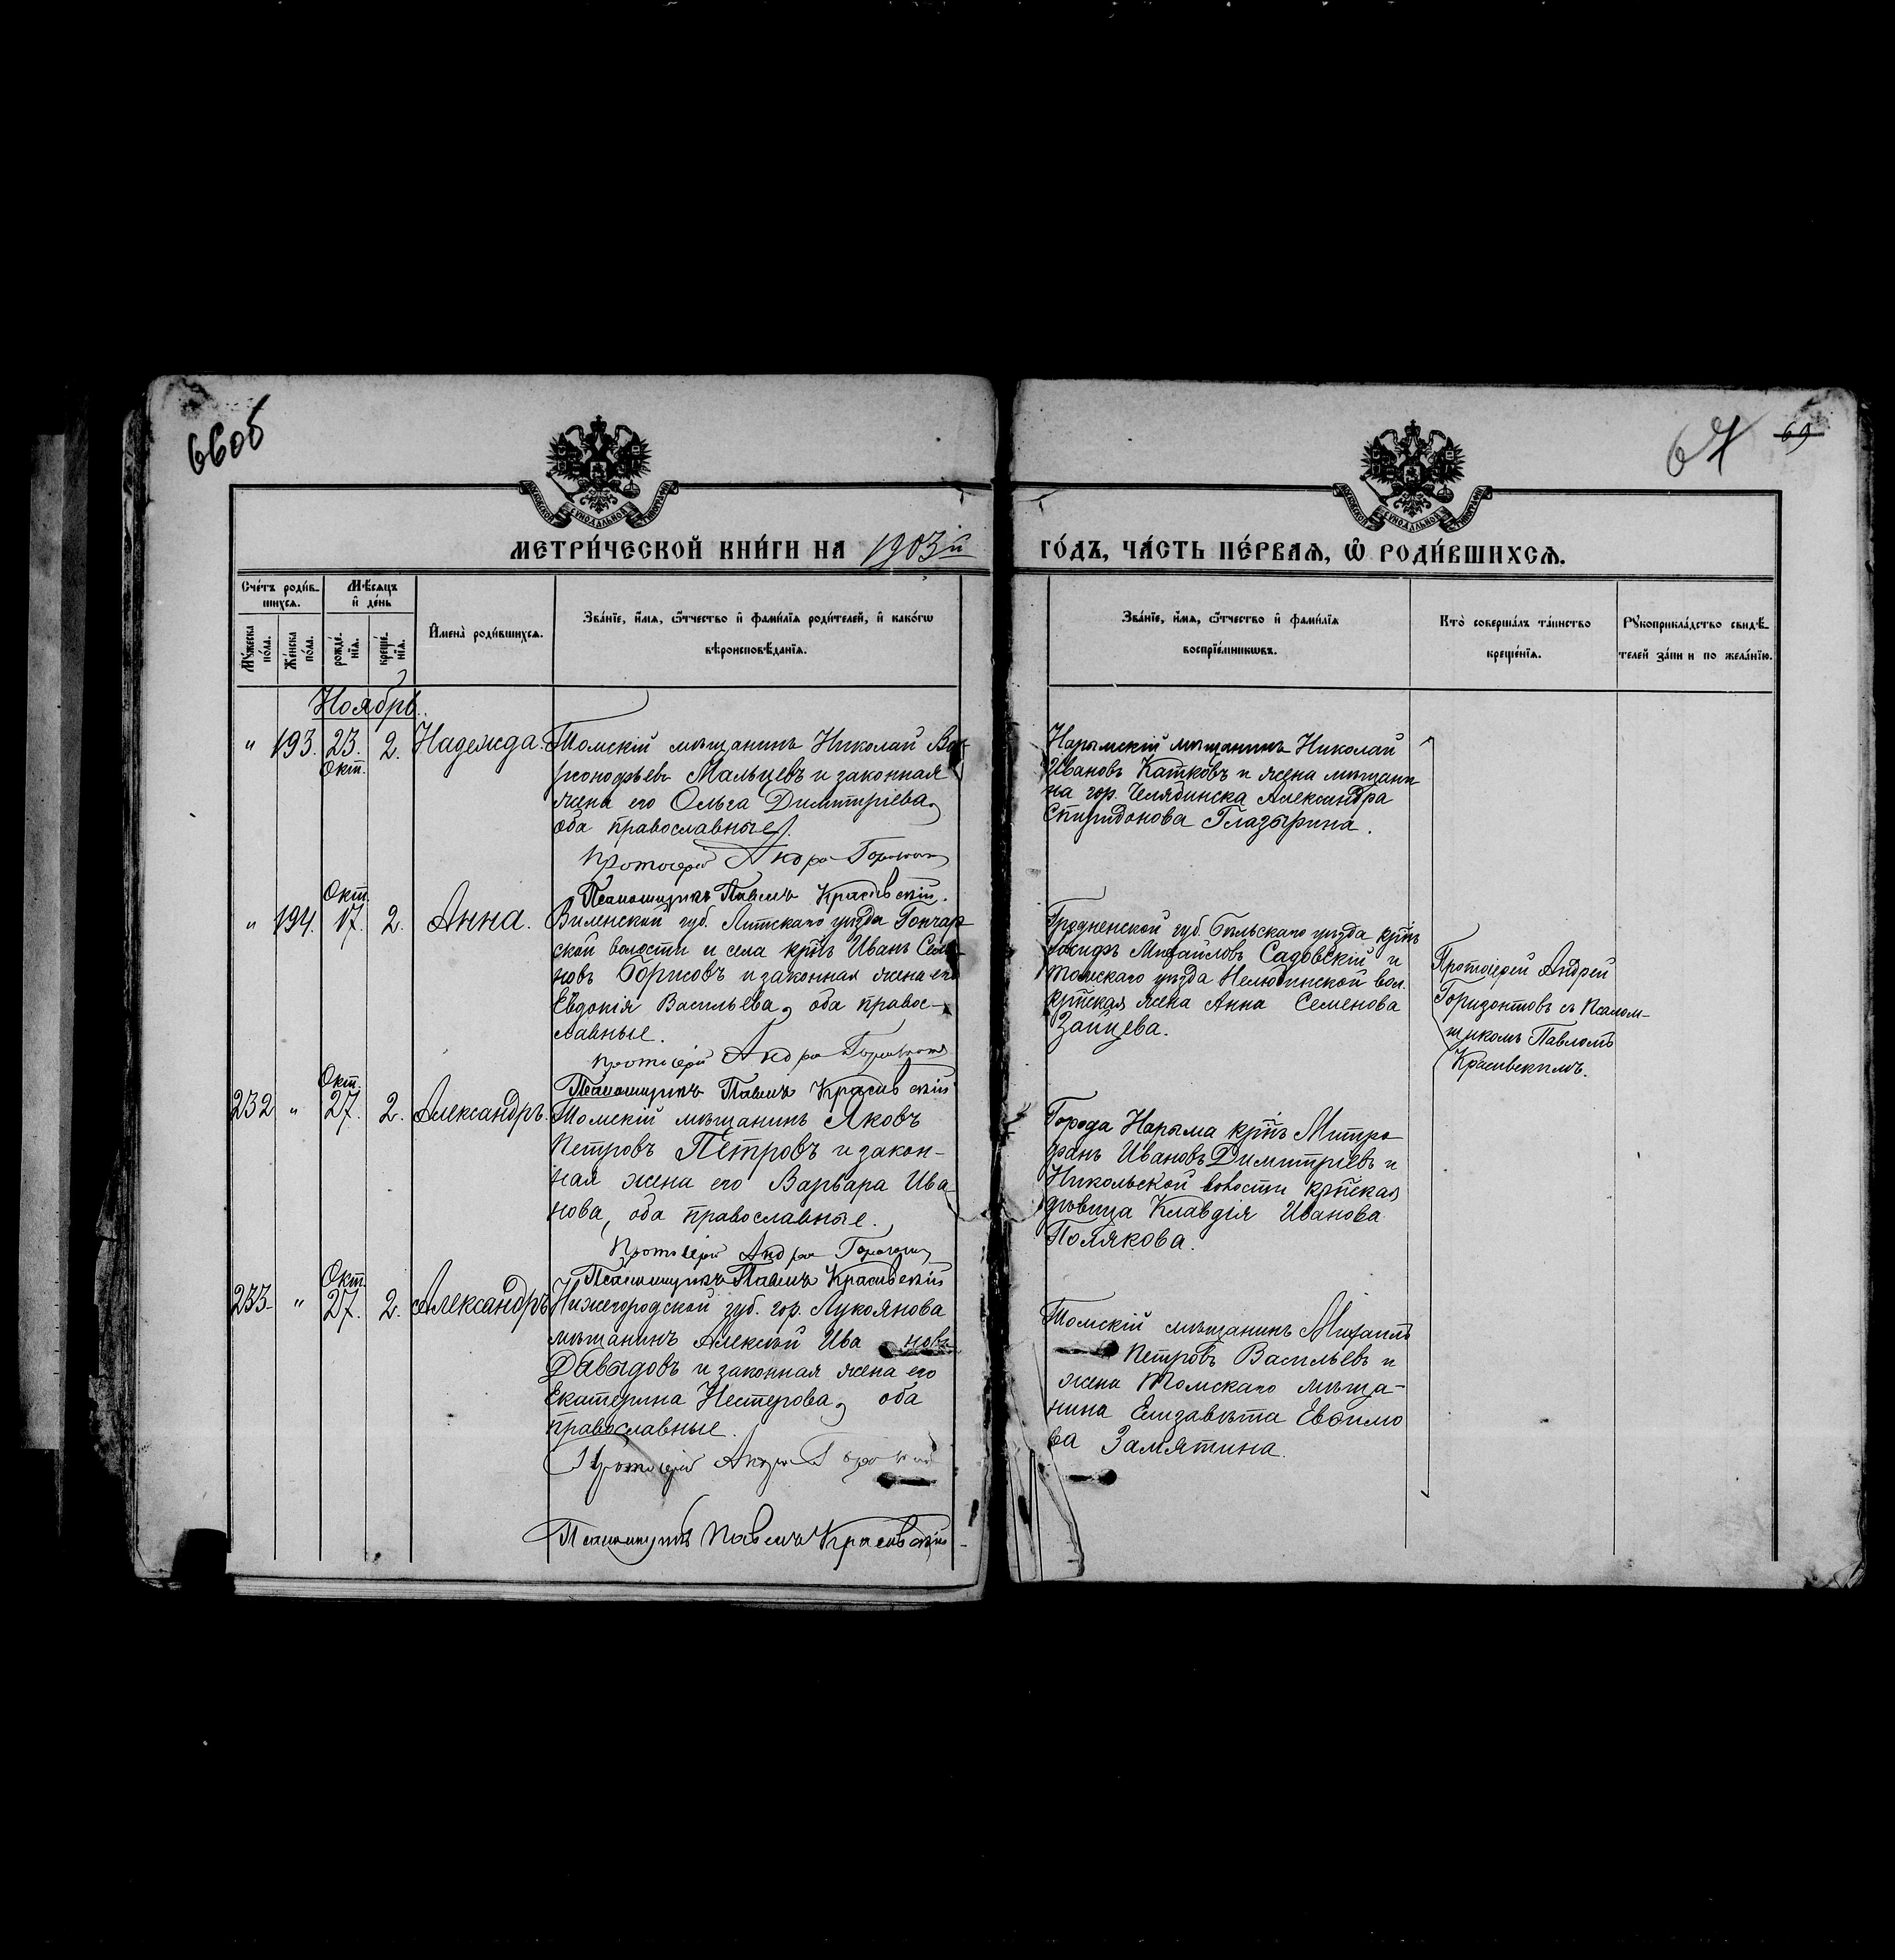 66об
67
69
МЕТРИ́ЧЕСКОЙ КНИ́ГИ НА 1903й
ГО́ДЪ, ЧА́СТЬ ПЕ́РВАѦ, Ѽ РОДИ́ВШИХСѦ.
Сче́тъ роди́в-
шихсѧ.
Мѣ́сѧцъ
и҆ де́нь
Мꙋ́жеска
по́ла.
Же́нска
по́ла.
рожде́-
нїѧ.
креще́-
нїѧ.
И҆мена̀ роди́вшихсѧ.
Зва́нїе, и҆́мѧ, ѻ҆́тчество и҆ фами́лїѧ роди́телей, и҆ како́гѡ
вѣроисповѣ́данїѧ.
Зва́нїе, и҆́мѧ, ѻ҆́тчество и҆ фами́лїѧ
воспрїе́мникѡвъ.
Кто̀ соверша́лъ та́инство
креще́нїѧ.
Рꙋкоприкла́дство свидѣ́-
телей за́пи и по жела́нїю.
Ноябрь.
" 193. 23. Окт. 2. Надежда.
Томскій мѣщанинъ Николай
Мальцевъ и законная
жена его Ольга Димитріева,
оба православные.
Протоіерей Андрей Горизонтовъ
Псаломщикъ Павелъ Красивскій.
Нарымскій мѣщанинъ Николай
Ивановъ Катковъ и жена мѣщани
на гор. Челябинска Александра
Спиридонова Глазырина.
" 194. Окт. 17. 2. Анна.
Виленской губ. Литскаго уѣзда Гончар
ской волости и села крнъ Иванъ Семе
новъ Борисовъ и законная жена его
Евдокія Васильева, оба правос-
лавные.
Протоіерей Андрей Горизонтовъ
Псаломщикъ Павелъ Красивскій
Гродненской губ. Бѣльскаго уѣзда крнъ
Іосифъ Михайловъ Садовскій и
Томскаго уѣзда Нелюбинской вол.
крнская жена Анна Семенова
Зайцева.
Протоіерей Андрей
Горизонтовъ съ Псалом-
щикомъ Павломъ
Красивскимъ.
232 " Окт. 27. 2. Александръ.
Томскій мѣщанинъ Яковъ
Петровъ Петровъ и закон-
ная жена его Варвара Ива
нова, оба православные.
Протоіерей Андрей Горизонтовъ
Псаломщикъ Павелъ Красивскій
Города Нарыма крнъ Митро
фанъ Ивановъ Димитріевъ и
Никольской волости крнская
дѣвица Клавдія Иванова
Полякова.
233. " Окт. 27. 2. Александръ
Нижегородской губ. гор. Лукоянова
мѣщанинъ Алексѣй Ива новъ
Давыдовъ и законная жена его
Екатерина Нестерова, оба
православные.
Протоіерей Андрей Горизонтовъ
Псаломщикъ Павелъ Красивскій
Томскій мѣщанинъ Михаилъ
Петровъ Васильевъ и
жена Томскаго мѣща-
нина Елизавета Евѳимо
ва Замятина.